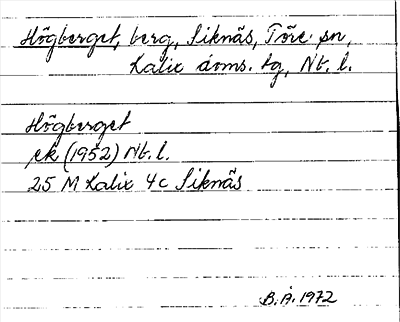 Högberget, berg, Siknäs, Töre sn,
Kalix doms. tg, Nb. l.
Högberget
ek (1952) Nb. l.
25 M Kalix 4c Siknäs
B. Å. 1972